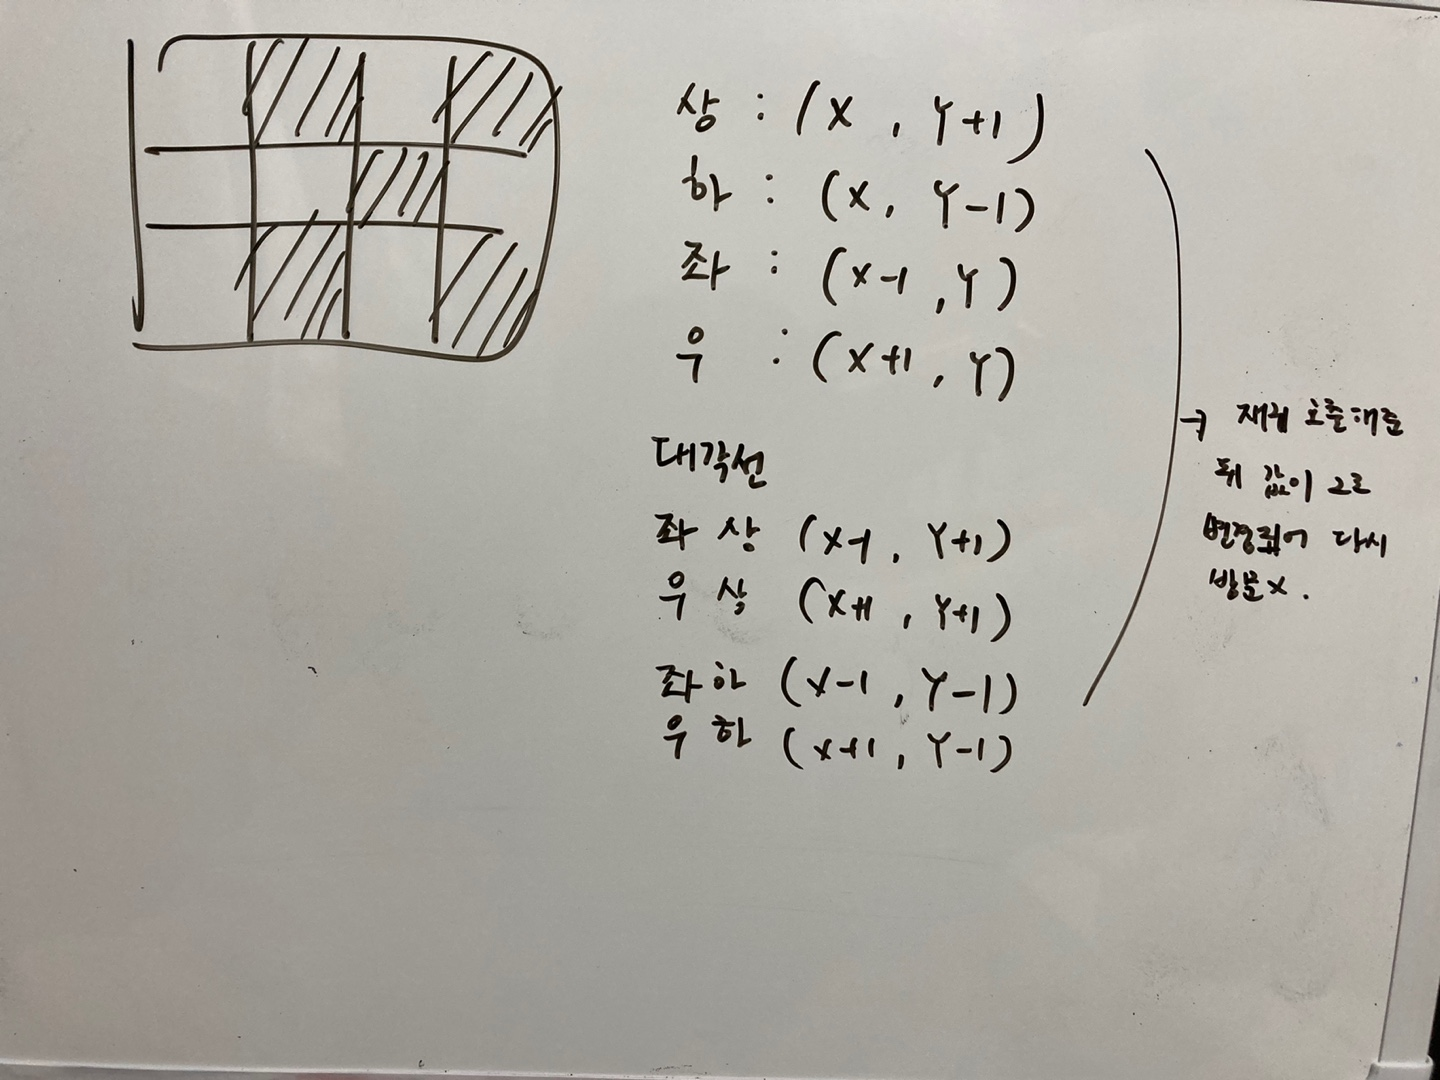 상 : (X , Y+1)
하 : (X, Y-1)
좌 : (X-1 , Y)
우 : (X+1 , Y)
대각선
좌 상 (X-1 , Y+1)
우 상 (X+1 , Y+1)
좌 하 (X-1 , Y-1)
우 하 (X+1 , Y-1)
→ 재귀 호출해준
뒤 값이 2로
변경되어 다시
방문 X .